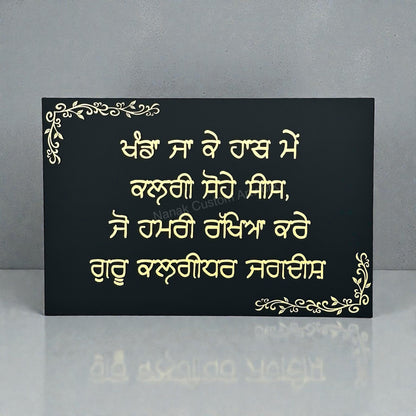 ਖੰਡਾ ਜਾ ਕੇ ਹਾਥ ਮੇਂ
ਕਲਗੀ ਸੋਹੇ ਸੀਸ,
ਜੋ ਹਮਰੀ ਰੱਖਿਆ ਕਰੇ
ਗੁਰੂ ਕਲਗੀਧਰ ਜਗਦੀਸ਼
Nanak Custom